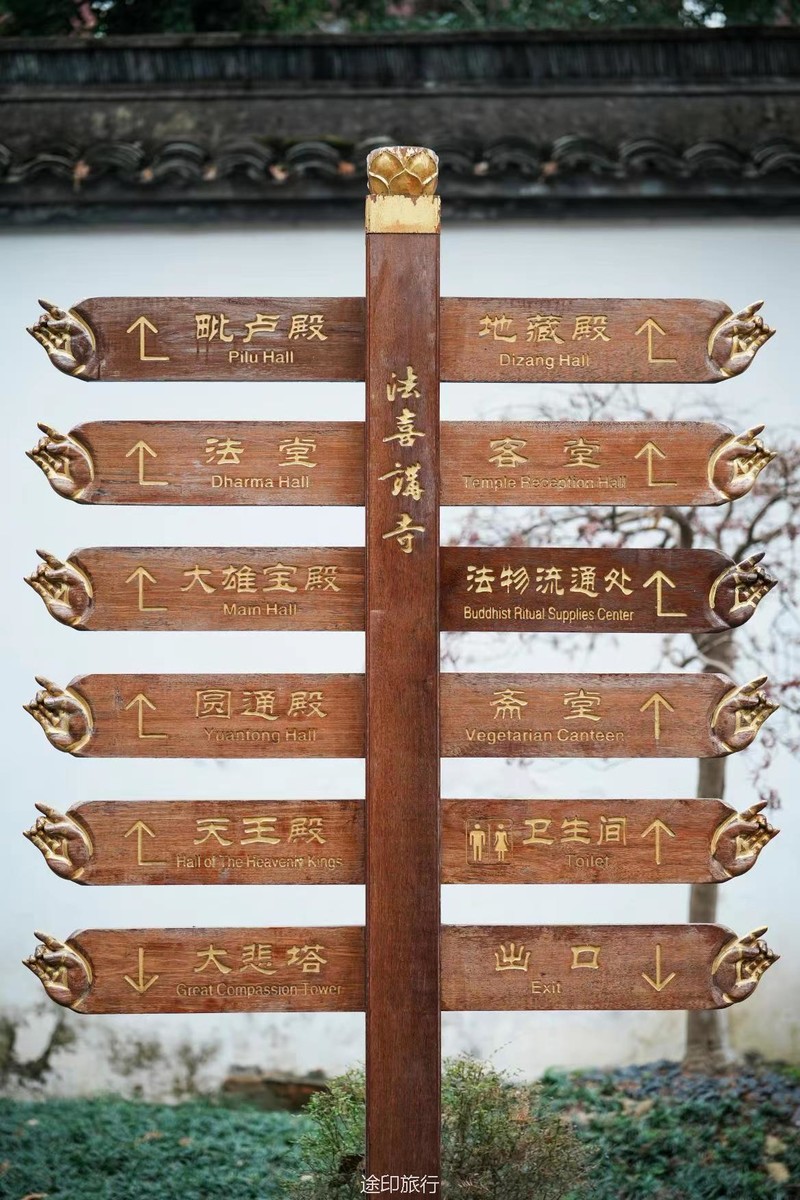 法喜講寺
毗卢殿
Pilu Hall
地藏殿
Dizang Hall
法堂
Dharma Hall
客堂
Temple Reception Hall
大雄宝殿
Main Hall
法物流通处
Buddhist Ritual Supplies Center
圆通殿
Yuantong Hall
斋堂
Vegetarian Canteen
天王殿
Hall of The Heavenly Kings
卫生间
Toilet
大悲塔
Great Compassion Tower
出口
Exit
途印旅行